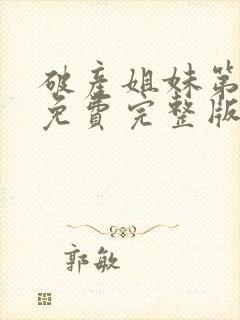 破产姐妹第
免费完整版
郭敏